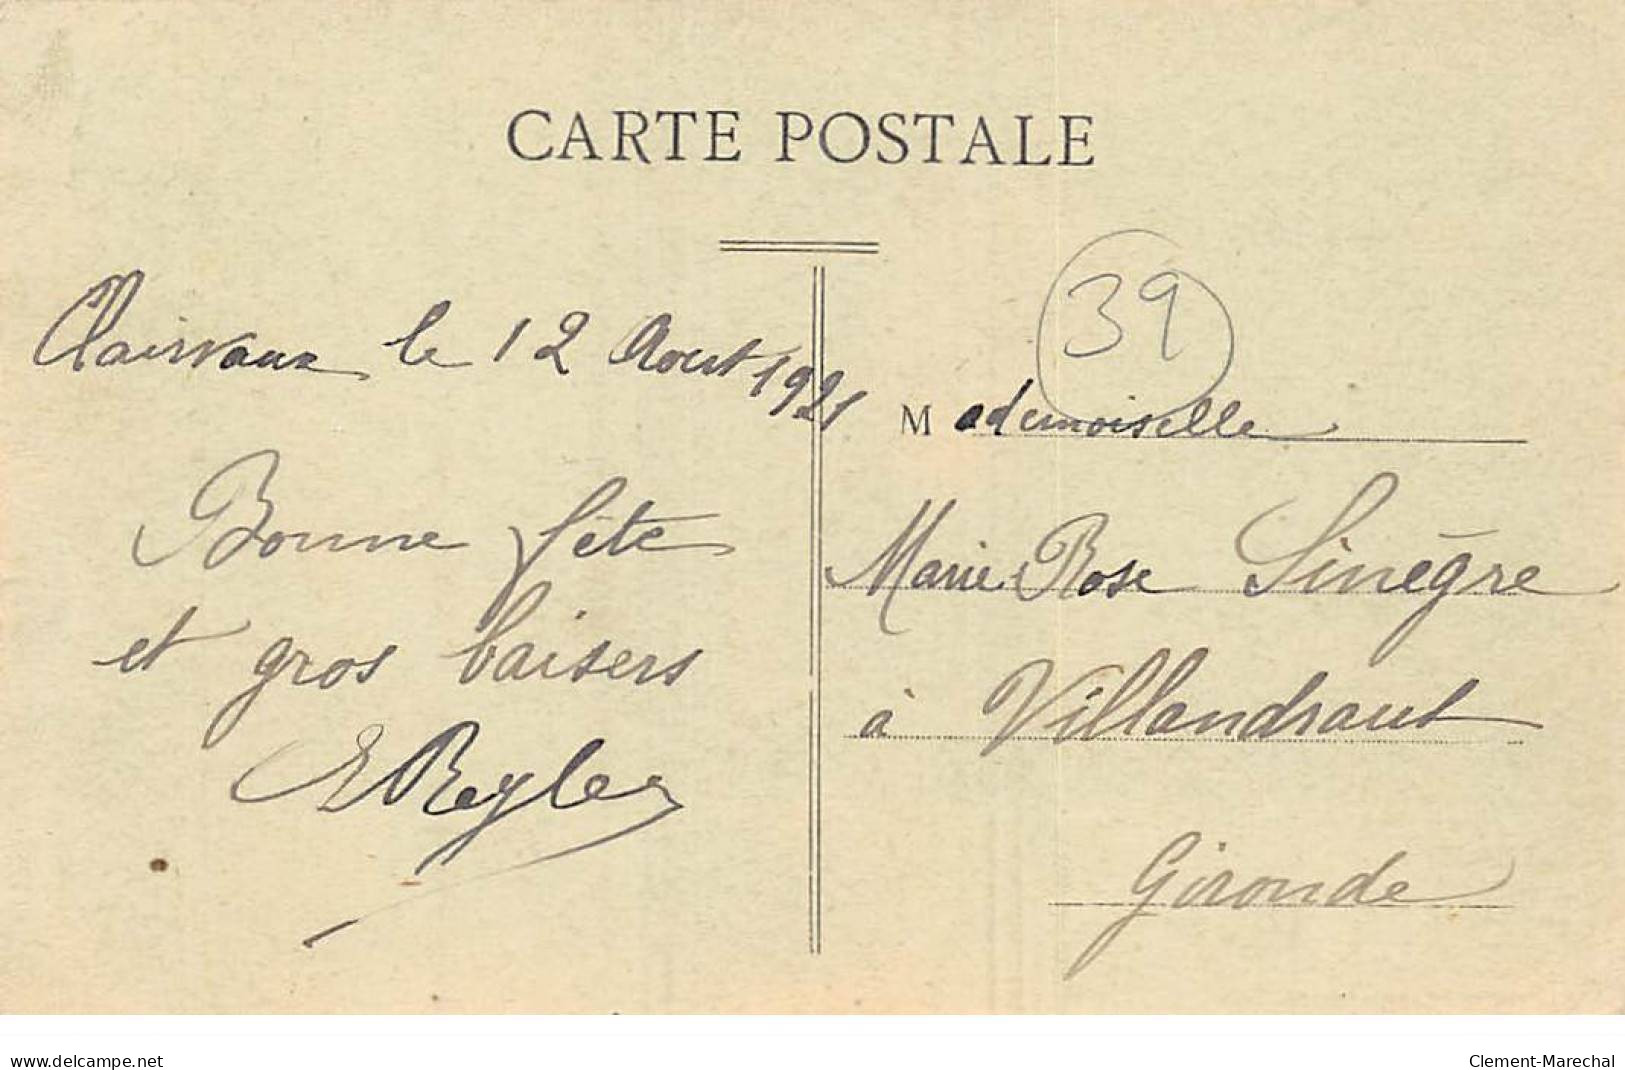 CARTE POSTALE
Clairvaux le 12 Aout 1921
Bonne fête
et gros baisers
39
Mademoiselle
Marie Rose Sinègre
à Villandraut
Gironde
www.delcampe.net
Clement-Marechal